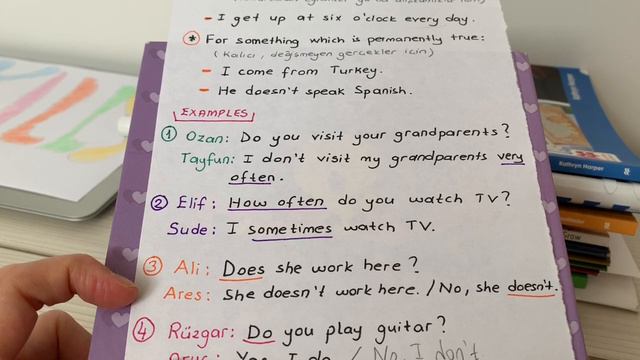 - I get up at six o'clock every day.
* For something which is permanently true:
(Kalıcı, değişmeyen gerçekler için)
- I come from Turkey.
- He doesn't speak Spanish.
EXAMPLES
1 Ozan: Do you visit your grandparents?
Tayfun: I don't visit my grandparents very
often.
2 Elif: How often do you watch TV?
Sude: I sometimes watch TV.
3 Ali: Does she work here?
Ares: She doesn't work here. / No, she doesn't.
4 Rüzgar: Do you play guitar?
Yes, I do. / No, I don't
Kathryn Harper